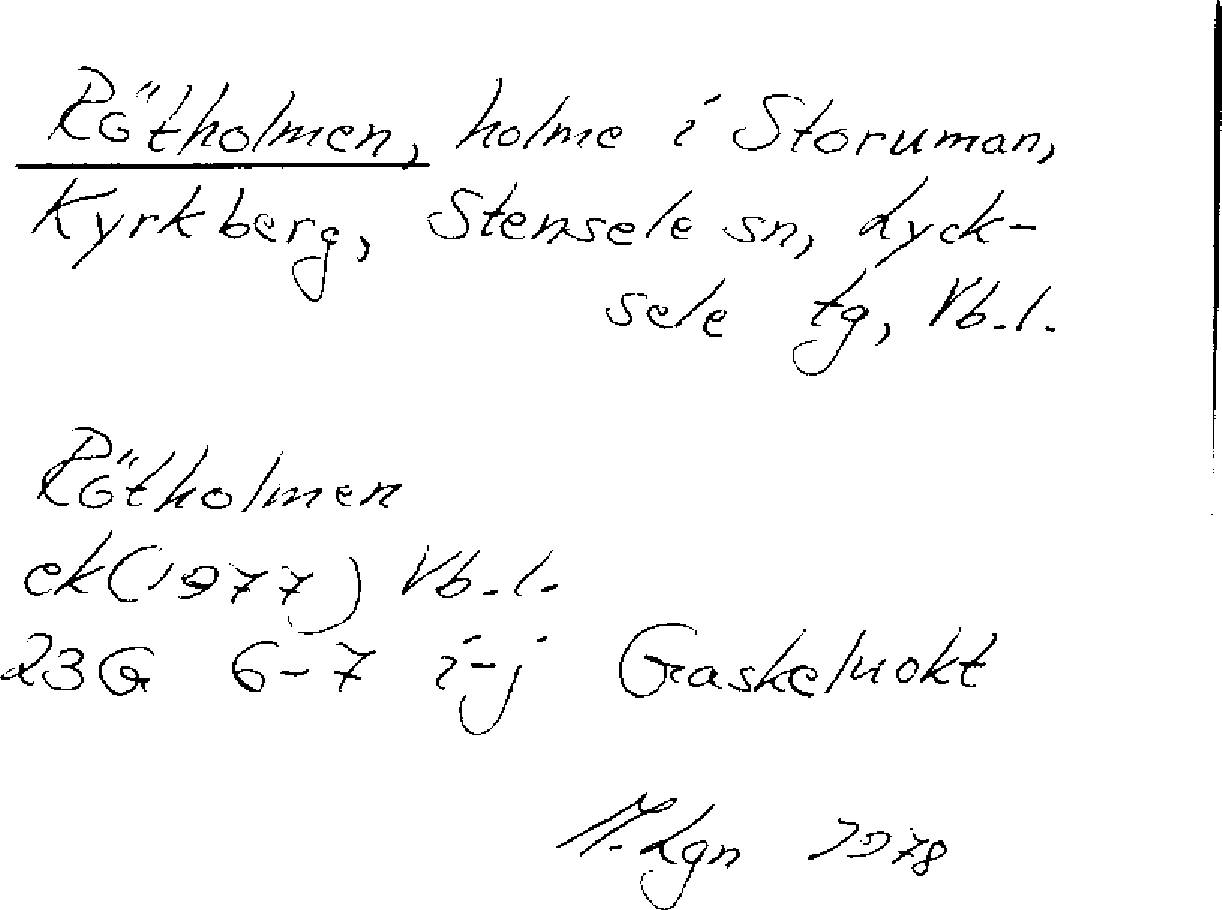 Rötholmen, holme i Storuman,
Kyrkberg, Stensele sn, Lyck-
sele tg, Vb.l.
Rötholmen
ek(1977) Vb.l.
23G 6-7 i-j Gaskeluokt
M.Lgn 1978